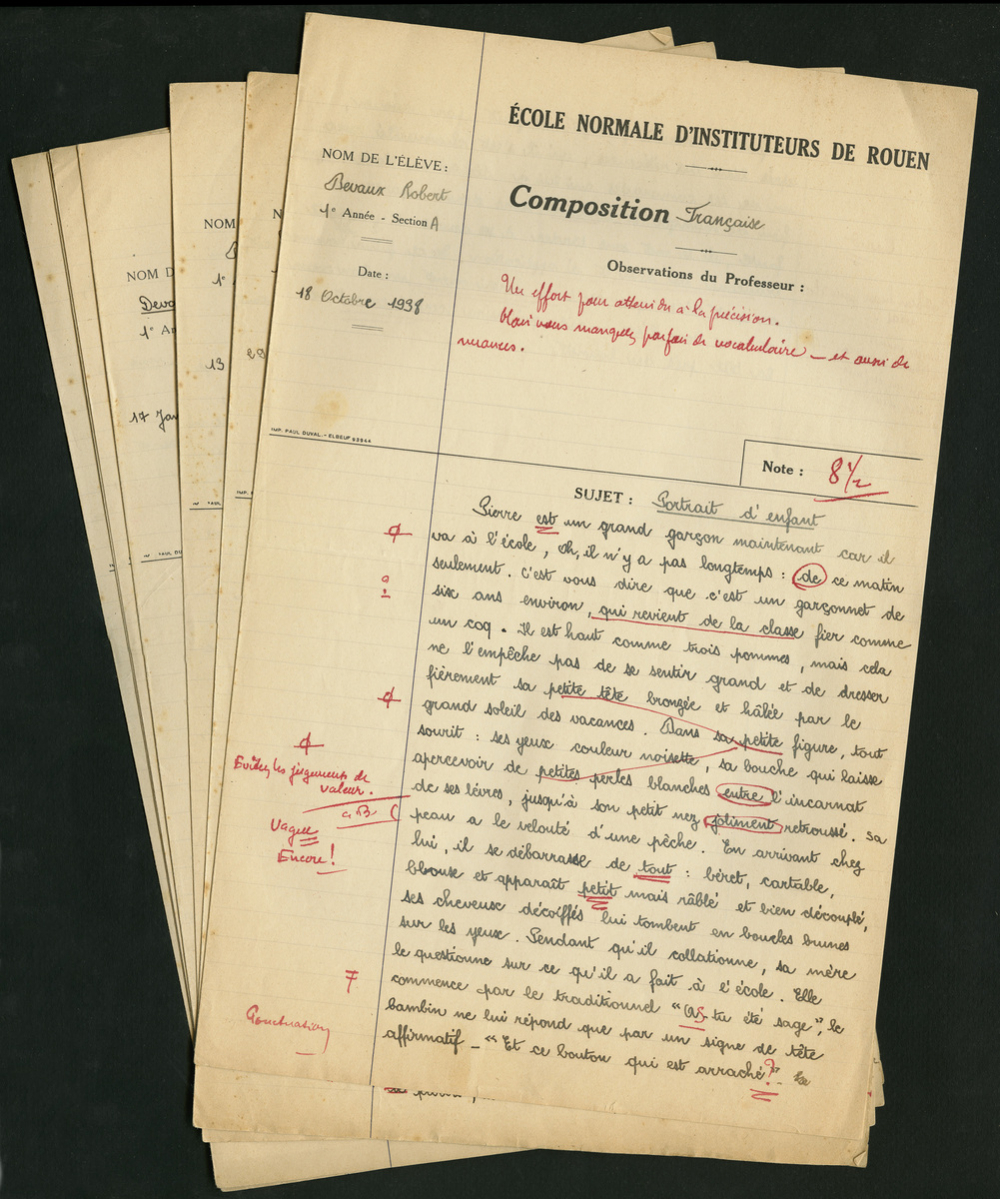 ÉCOLE NORMALE D'INSTITUTEURS DE ROUEN
NOM DE L'ÉLÈVE :
Devaux Robert
1e Année - Section A
Composition Française
Date :
18 Octobre 1938
Observations du Professeur :
Un effort pour atteindre à la précision.
Mais vous manquez parfois de vocabulaire — et aussi de
nuances.
IMP. PAUL DUVAL. - ELBEUF 62964
Note : 8 1/2
SUJET : Portrait d'enfant
Pierre est un grand garçon maintenant car il
va à l'école, Oh, il n'y a pas longtemps : de ce matin
seulement. C'est vous dire que c'est un garçonnet de
six ans environ, qui revient de la classe fier comme
un coq. Il est haut comme trois pommes, mais cela
ne l'empêche pas de se sentir grand et de dresser
fièrement sa petite tête bronzée et hâlée par le
grand soleil des vacances. Dans sa petite figure, tout
sourit : ses yeux couleur noisette, sa bouche qui laisse
apercevoir de petites perles blanches entre l'incarnat
de ses lèvres, jusqu'à son petit nez joliment retroussé. Sa
peau a le velouté d'une pêche. En arrivant chez
lui, il se débarrasse de tout : béret, cartable,
blouse et apparaît petit mais râblé et bien découplé,
ses cheveux décoiffés lui tombent en boucles brunes
sur les yeux. Pendant qu'il collationne, sa mère
le questionne sur ce qu'il a fait à l'école. Elle
commence par le traditionnel "As-tu été sage", le
bambin ne lui répond que par un signe de tête
affirmatif - "Et ce bouton qui est arraché ?"
?
Evitez les jugements de
valeur.
Vague
Encore !
Ponctuation
NOM
1e
13
N
28
NOM D
Deva
1e An
17 Jan